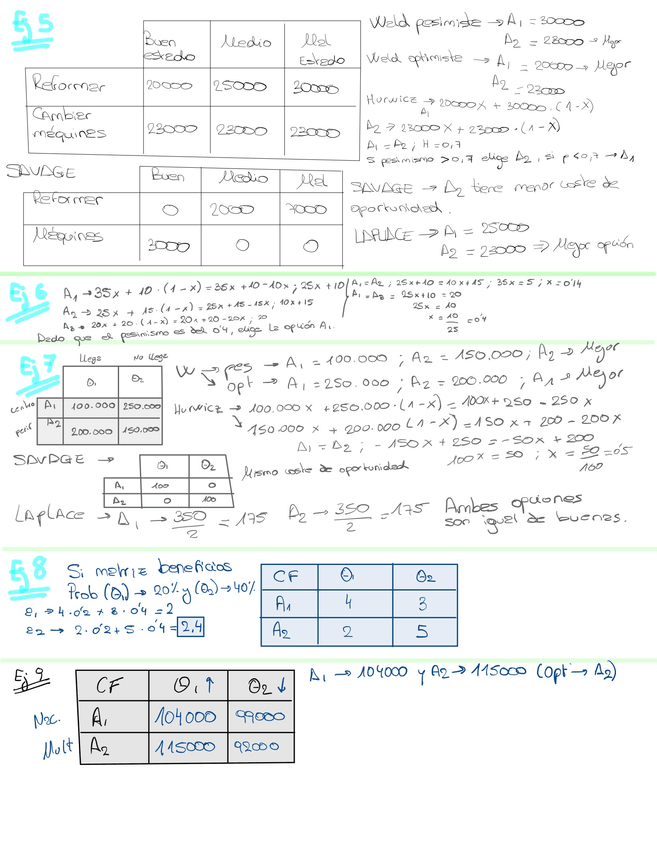 Ej 5
Buen estado Medio Mal Estado
Reformar 20000 25000 30000
Cambiar máquinas 23000 23000 23000
Wald pesimista → A1 = 30000
A2 = 23000 → Mejor
Wald optimista → A1 = 20000 → Mejor
A2 = 23000
Hurwicz → 20000x + 30000 · (1-x)
A1
A2 → 23000x + 23000 · (1-x)
A1 = A2 ; H = 0,7
S pesimismo > 0,7 elige A2, si p < 0,7 → A1
SAVAGE
Buen Medio Mal
Reformar 0 2000 7000
Máquinas 3000 0 0
SAVAGE → A2 tiene menor coste de
oportunidad.
LAPLACE → A1 = 25000
A2 = 23000 ⇒ Mejor opción
Ej 6
A1 → 35x + 10 · (1-x) = 35x + 10 - 10x ; 25x + 10
A2 → 25x + 15 · (1-x) = 25x + 15 - 15x ; 10x + 15
A3 → 20x + 20 · (1-x) = 20x + 20 - 20x ; 20
A1 = A2 ; 25x + 10 = 10x + 15 ; 35x = 5 ; x = 0'14
A1 = A3 = 25x + 10 = 20
25x = 10
x = 10/25 = 0'4
Dado que el pesimismo es del 0'4, elige la opción A1.
Ej 7
Llega No llega
θ1 θ2
centro A1 100.000 250.000
perif A2 200.000 150.000
W → pes → A1 = 100.000 ; A2 = 150.000 ; A2 → Mejor
→ opt → A1 = 250.000 ; A2 = 200.000 ; A1 → Mejor
Hurwicz → 100.000x + 250.000 · (1-x) = 100x + 250 - 250x
150.000x + 200.000 (1-x) = 150x + 200 - 200x
A1 = A2 ; -150x + 250 = -50x + 200
100x = 50 ; x = 50/100 = 0'5
SAVAGE →
θ1 θ2
A1 100 0
A2 0 100
Mismo coste de oportunidad
LAPLACE → A1 → 350/2 = 175 A2 → 350/2 = 175 Ambas opciones
son igual de buenas.
Ej 8
Si matriz beneficios
Prob (θ1) → 20% y (θ2) → 40%
e1 → 4 · 0'2 + 3 · 0'4 = 2
e2 → 2 · 0'2 + 5 · 0'4 = 2,4
CF θ1 θ2
A1 4 3
A2 2 5
Ej 9
CF θ1 ↑ θ2 ↓
Nac. A1 104000 99000
Mult A2 115000 92000
A1 → 104000 y A2 → 115000 (Opt → A2)